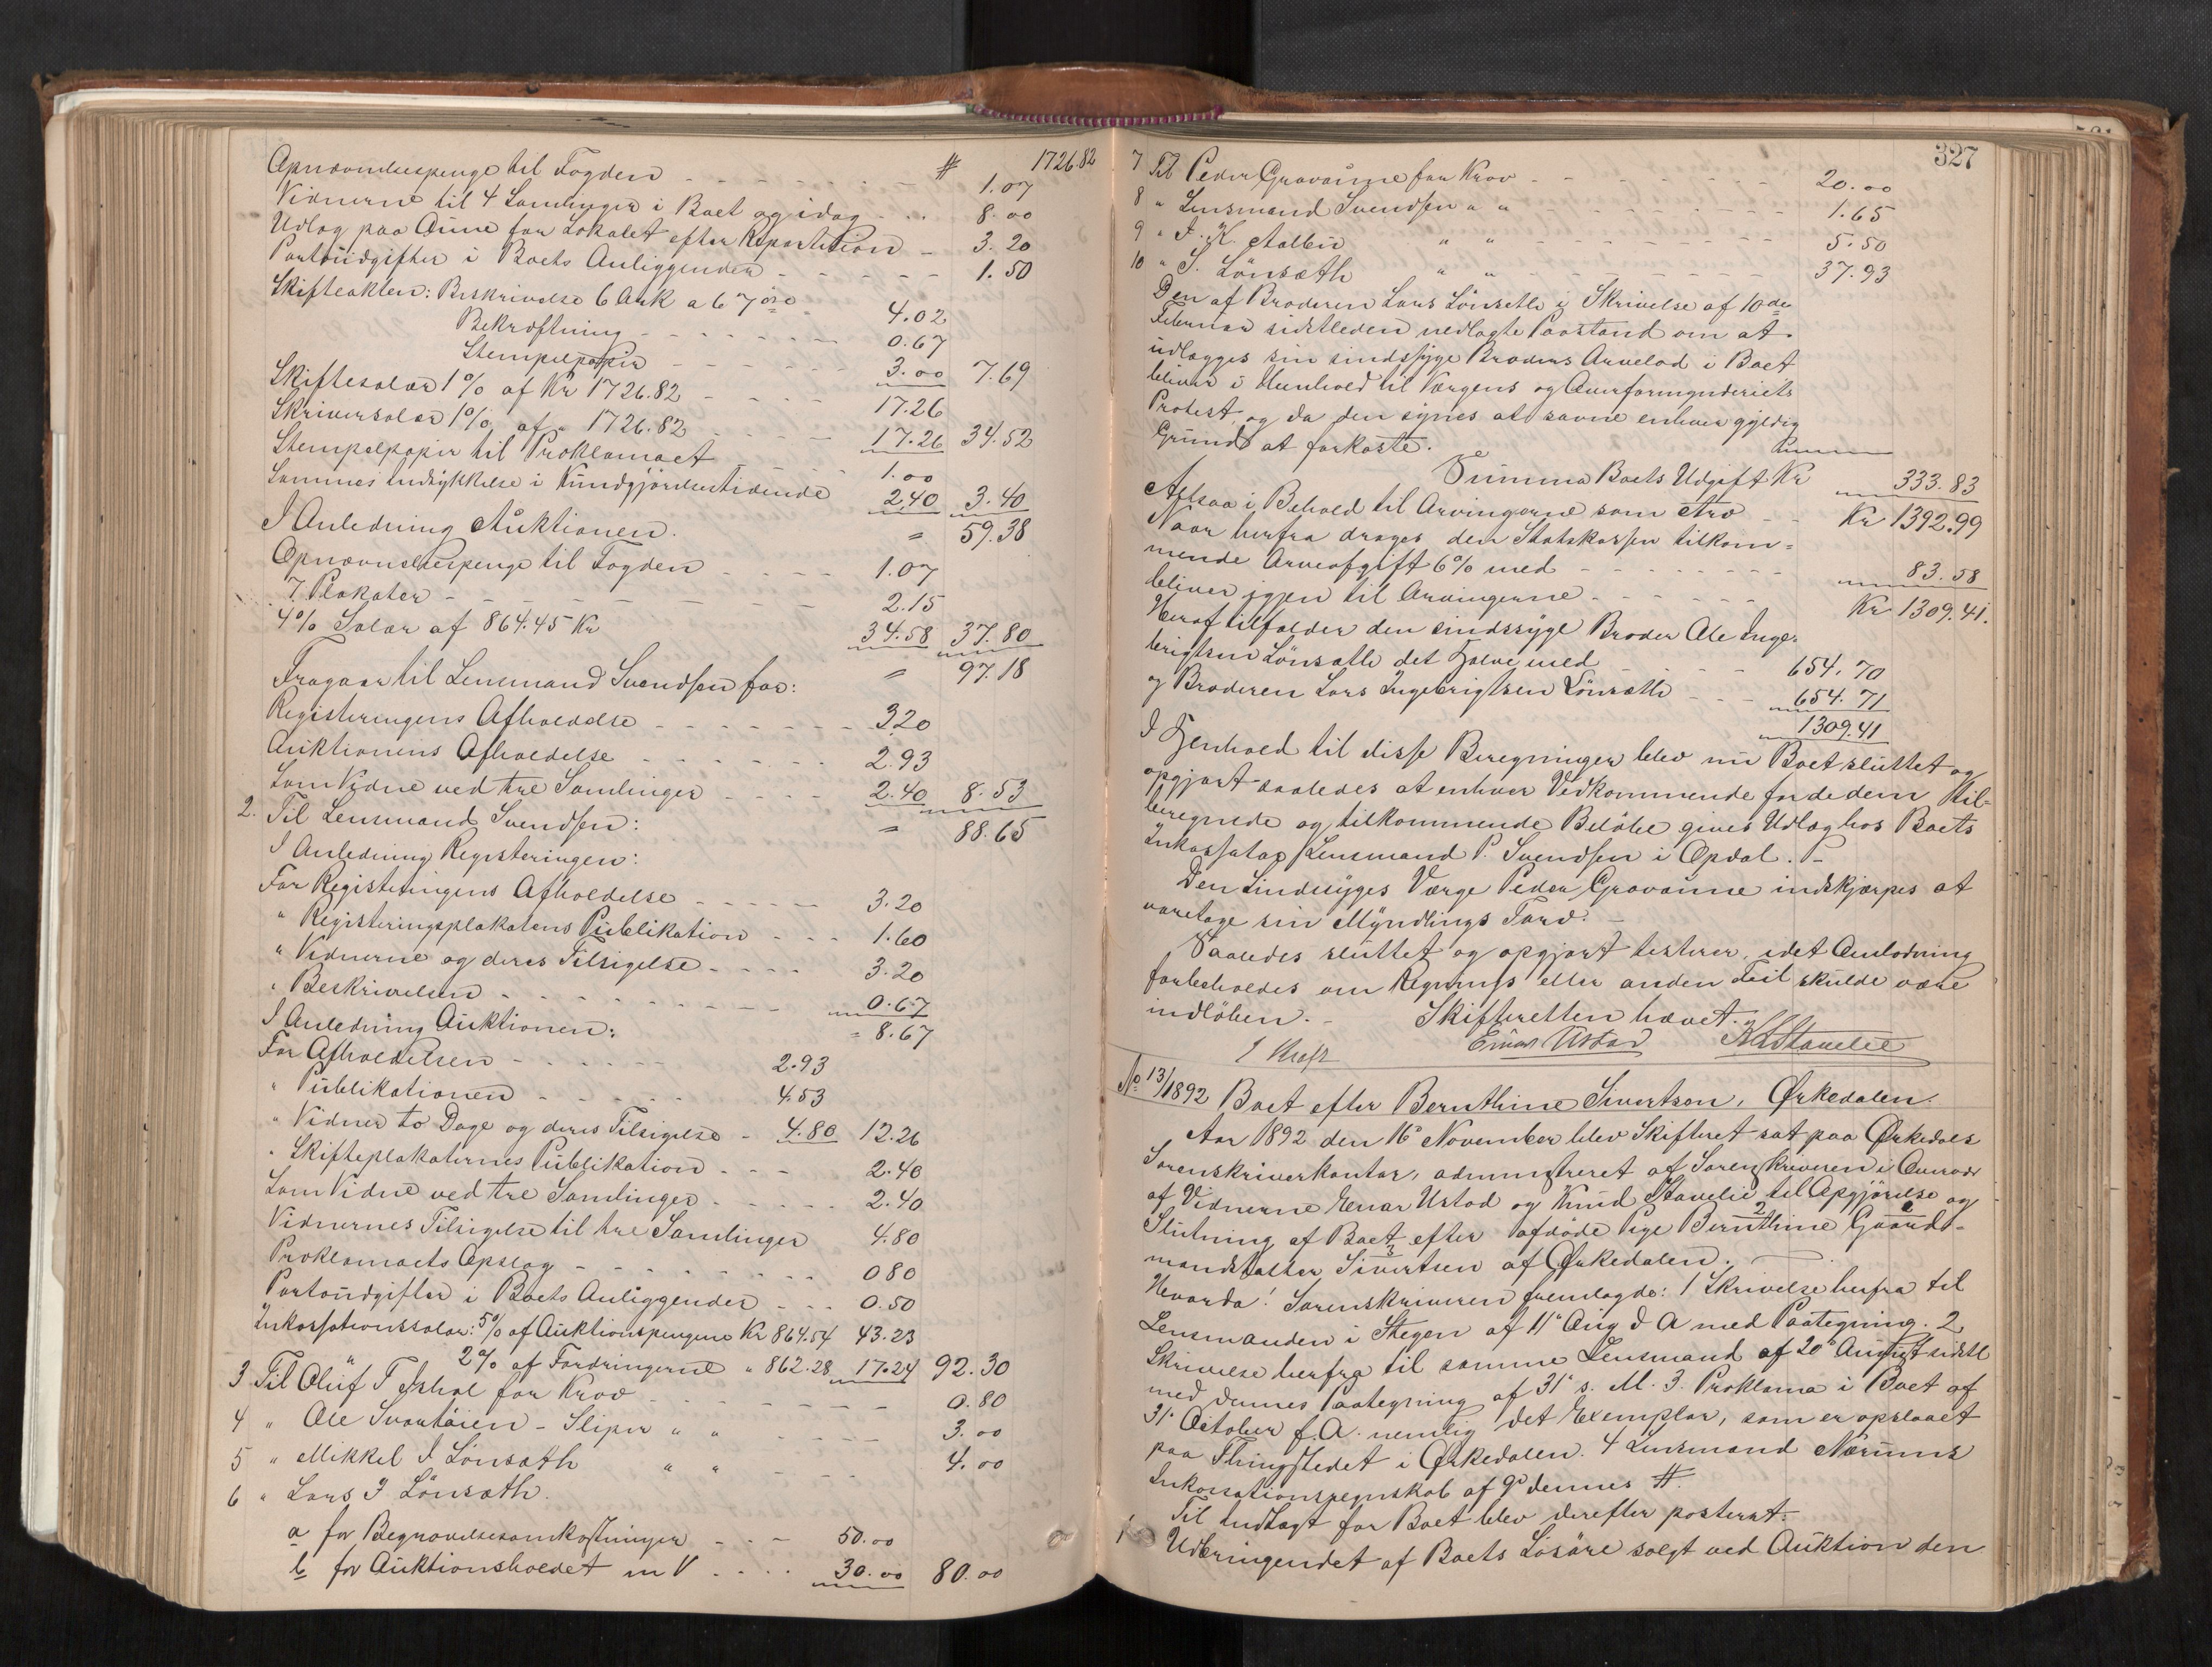 Opnævnelsespenge til Fogden - - - - - - # 1726 82
1.07
Vidnerne til 4 Samlinger i Boet og idag - - - 8.00
Udlæg paa Aune for Lokalet efter Repartition - 3.20
Portoudgifter i Boets Anliggender - - - - 1.50
Skifteakten: Beskrivelse 6 Ark a 67 øre - 4.02
Bekræftning - - - - - - 0.67
Stempelpapir - - - - - 3.00 7.69
Skiftesalær 1% af Kr 1726.82 - - - - 17.26
Skriversalær 1% af " 1726.82 - - - - 17.26 34.52
Stempelpapir til Proklamaet 1.00
Sammes Indrykkelse i Kundgjørelsestidende 2.40 3.40
I Anledning Auktionen. = 59.38
Opnævnelsespenge til Fogden - - - - 1.07
7 Plakater - - - - - - - 2.15
4% Salær af 864.45 Kr 34.58 37.80
= 97.18
Fragaar til Lensmand Svendsen for:
Registeringens Afholdelse - - - - - - 3.20
Auktionens Afholdelse - - - - - - 2.93
Som Vidne ved tre Samlinger - - - - 2.40 8.53
= 88.65
2. Til Lensmand Svendsen:
I Anledning Registeringen:
For Registeringens Afholdelse - - - - - 3.20
" Registeringsplakatens Publikation - - - 1.60
" Vidnerne og deres Tilsigelse - - - - 3.20
" Beskrivelsen - - - - - - - 0.67
= 8.67
I Anledning Auktionen:
For Afholdelsen - - - - - 2.93
" Publikationen - - - - - 4.53
" Vidner to Dage og deres Tilsigelse - 4.80 12.26
" Skifteplakaternes Publikation - - - 2.40
Som Vidne ved tre Samlinger - - - - - 2.40
Vidnernes Tilsigelse til tre Samlinger 4.80
Proklamaets Opslag - - - - - - - 0 80
Portoudgifter i Boets Anliggender - - - 0.50
Inkassationssalær: 5% af Auktionspengene Kr 864.54 43.23
" 2% af Fordringerne " 862.28 17.24 92.30
3 Til Oluf T Ishol for Krav - - - - - - - 0.80
4 " Ole Svartøien - Sliper " " - - - - 3.00
5 " Mikkel I Lönsæth " " - - - 4.00
6 " Lars I Lönsæth.
a for Begravelsesomkostninger - - - 50.00
b for Auktionsholdet m V - - - - 30.00 80.00
327
7 Til Peder Gravaune for Krav - - - - - - 20.00
8 " Lensmand Svendsen " " - - - - - - 1.65
9 " I. K. Aalbu " " - - - - - - 5.50
10 " S. Lönsæth " " - - - - - - 37.93
Den af Broderen Lars Lönseth i Skrivelse af 10de
Februar sidstleden nedlagte Paastand om at
udlægges sin sindssyge Broders Arvelod i Boet
bliver i Henhold til Værgens og Overformynderiets
Protest og da den synes at savne enhver gyldig
Grund at forkaste.
Summa Boets Udgift Kr 333.83
Altsaa i Behold til Arvingerne som Arv - - Kr 1392.99
Naar herfra drages den Statskassen tilkom=
mende Arveafgift 6% med - - - - - - 83.58
bliver igjen til Arvingerne - - - - - - Kr 1309.41.
Heraf tilfalder den sindssyge Broder Ole Inge-
brigtsen Lönsæth det Halve med - - - - 654.70
og Broderen Lars Ingebrigtsen Lönsæth - - - 654.71
1309.41
I Henhold til disse Beregninger blev nu Boet sluttet og
opgjort saaledes at enhver Vedkommende for de dem til-
beregnede og tilkommende Beløbe gives Udlæg hos Boets
Inkassator Lensmand P. Svendsen i Opdal. -
Den Sindssyges Værge Peder Gravaune indskjærpes at
varetage sin Myndlings Tarv. -
Saaledes sluttet og opgjort testerer, idet Anledning
forbeholdes om Regnings eller anden Feil skulde være
indløben. - Skifteretten hævet.
Einar Ustad K Stavelie
No 13/1892 Boet efter Bernthine Sivertsen, Ørkedalen.
Aar 1892 den 16 November blev Skifteret sat paa Ørkedals
Sorenskriverkontor, administreret af Sorenskriveren i Overvær
af Vidnerne Einar Ustad og Knud Stavelie til Opgjørelse og
Slutning af Boet efter afdøde Pige Bernthine Gaard-
mandsdatter Sivertsen af Ørkedalen.
Hvorda! Sorenskriveren fremlagde: 1 Skrivelse herfra til
Lensmanden i Stegen af 11 Aug d A med Paategning. 2
Skrivelse herfra til samme Lensmand af 20 August sidstl
med dennes Paategning af 31 s. M. 3. Proklama i Boet af
31 October f. A. nemlig det Exemplar, som er opslaaet
paa Thingstedet i Ørkedalen. 4 Lensmand Nærums
Inkassationsregnskab af 9 dennes #.
Til Indtægt for Boet blev derefter posteret:
1 Udbringendet af Boets Løsøre solgt ved Auktion den